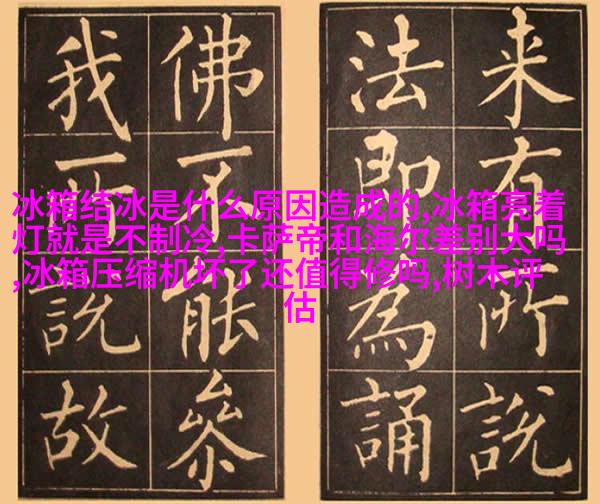 来有所說
法即為誦
佛不能參
我所說故
冰箱结冰是什么原因造成的,冰箱亮着
灯就是不制冷,卡萨帝和海尔差别大吗
,冰箱压缩机坏了还值得修吗,树木评
估